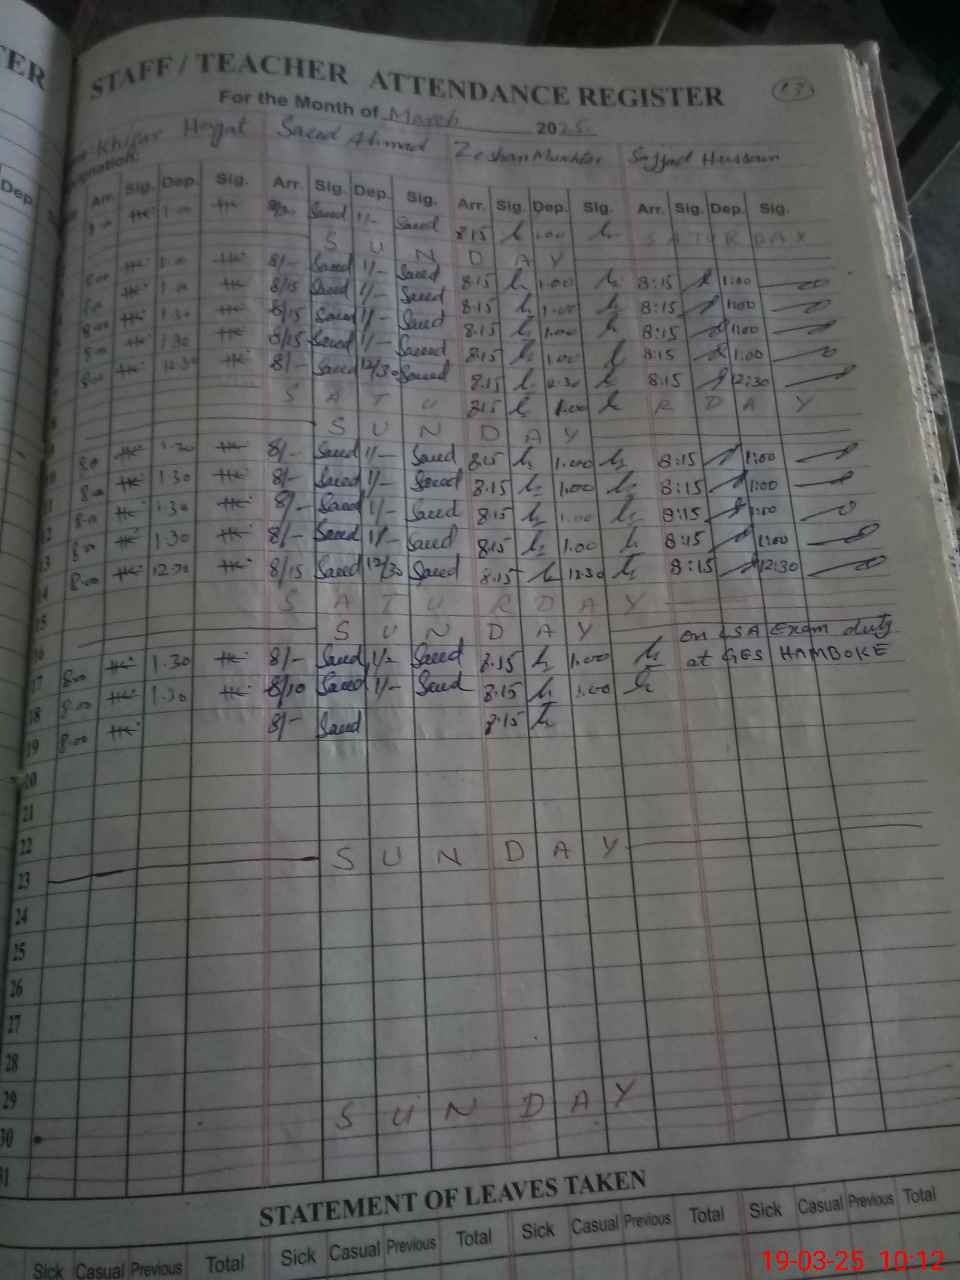 TER
STAFF / TEACHER ATTENDANCE REGISTER
13
For the Month of March 2025
Khifar Hayat Saeed Ahmad Zeshan Mukhtar Sajjad Hussain
Dep. Arr. Sig. Dep. Sig. Arr. Sig. Dep. Sig. Arr. Sig. Dep. Sig. Arr. Sig. Dep. Sig.
Saeed 1/- Saeed 8.15 1.00 SATURDAY
SUNDAY
8.00 1.00 8/- Saeed 1/- Saeed 8.15 1.00 8:15 1:00
8.00 1.00 8/15 Saeed 1/- Saeed 8.15 1.00 8:15 1:00
8.00 1.30 8/15 Saeed 1/- Saeed 8.15 1.00 8:15 1:00
8.00 1.30 8/15 Saeed 1/- Saeed 8.15 1.00 8:15 1:00
8.00 12.30 8/- Saeed 12/30 Saeed 8.15 12.30 8:15 12:30
SATU 8.15 1.00 RDAY
SUNDAY
8.00 1.30 8/- Saeed 1/- Saeed 8.15 1.00 8:15 1:00
8.00 1.30 8/- Saeed 1/- Saeed 8.15 1.00 8:15 1:00
11 8.00 1.30 8/- Saeed 1/- Saeed 8.15 1.00 8:15 1:00
12 8.00 1.30 8/- Saeed 1/- Saeed 8.15 1.00 8:15 1:00
13 8.00 12.30 8/15 Saeed 12/30 Saeed 8.15 12.30 8:15 12:30
14 SATURDAY
15 SUNDAY on LSA Exam duty
16 8.00 1.30 8/- Saeed 1/- Saeed 8.15 1.00 at GES HAMBOKE
17 8.00 1.30 8/10 Saeed 1/- Saeed 8.15 1.00
18 8.00 8/- Saeed 8.15
19
20
21
22 SUNDAY
23
24
25
26
27
28
29 SUNDAY
30
31
STATEMENT OF LEAVES TAKEN
Sick Casual Previous Total Sick Casual Previous Total Sick Casual Previous Total Sick Casual Previous Total
19-03-25 10:12